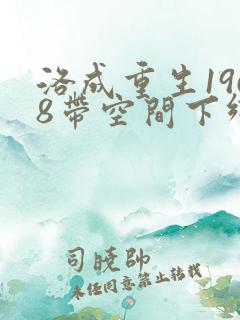 洛成重生196
8带空間下
司晓帥
未经同意禁止转载